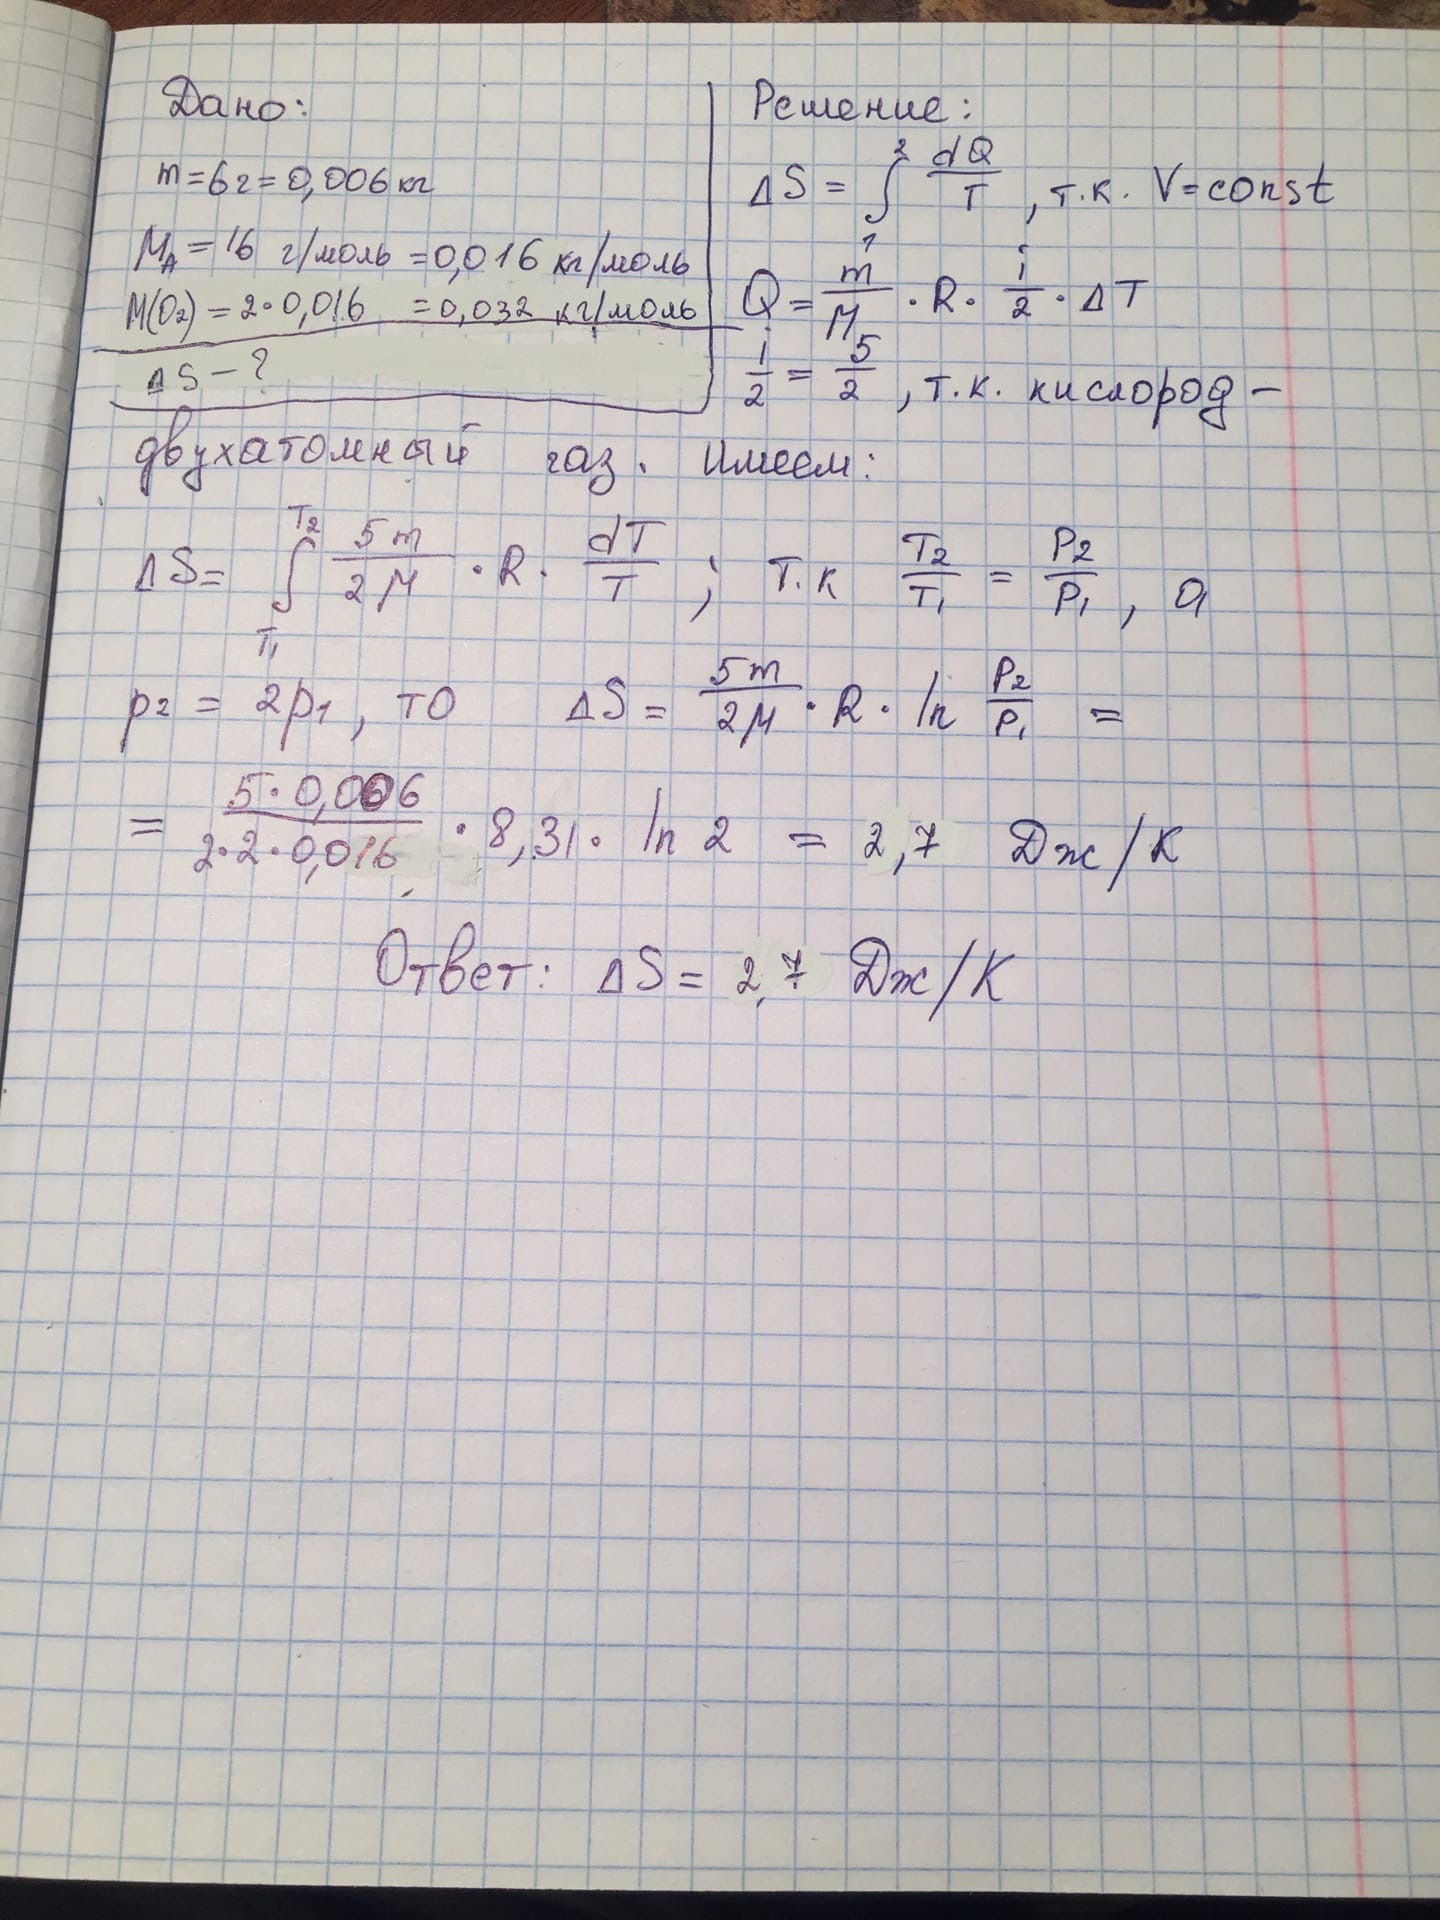 Дано:
m=6г=0,006кг
M_A=16 г/моль=0,016 кг/моль
M(O₂)=2·0,016 =0,032 кг/моль
ΔS-?
Решение:
ΔS = ∫₁² dQ/T, т.к. V=const
Q = m/M · R · i/2 · ΔT
i/2 = 5/2, т.к. кислород -
двухатомный газ. Имеем:
ΔS= ∫_{T₁}^{T₂} 5m/2M · R · dT/T ; т.к T₂/T₁ = P₂/P₁, а
p₂ = 2p₁, то ΔS= 5m/2M · R · ln P₂/P₁ =
= 5·0,006/2·2·0,016 · 8,31 · ln 2 = 2,7 Дж/К
Ответ: ΔS= 2,7 Дж/К